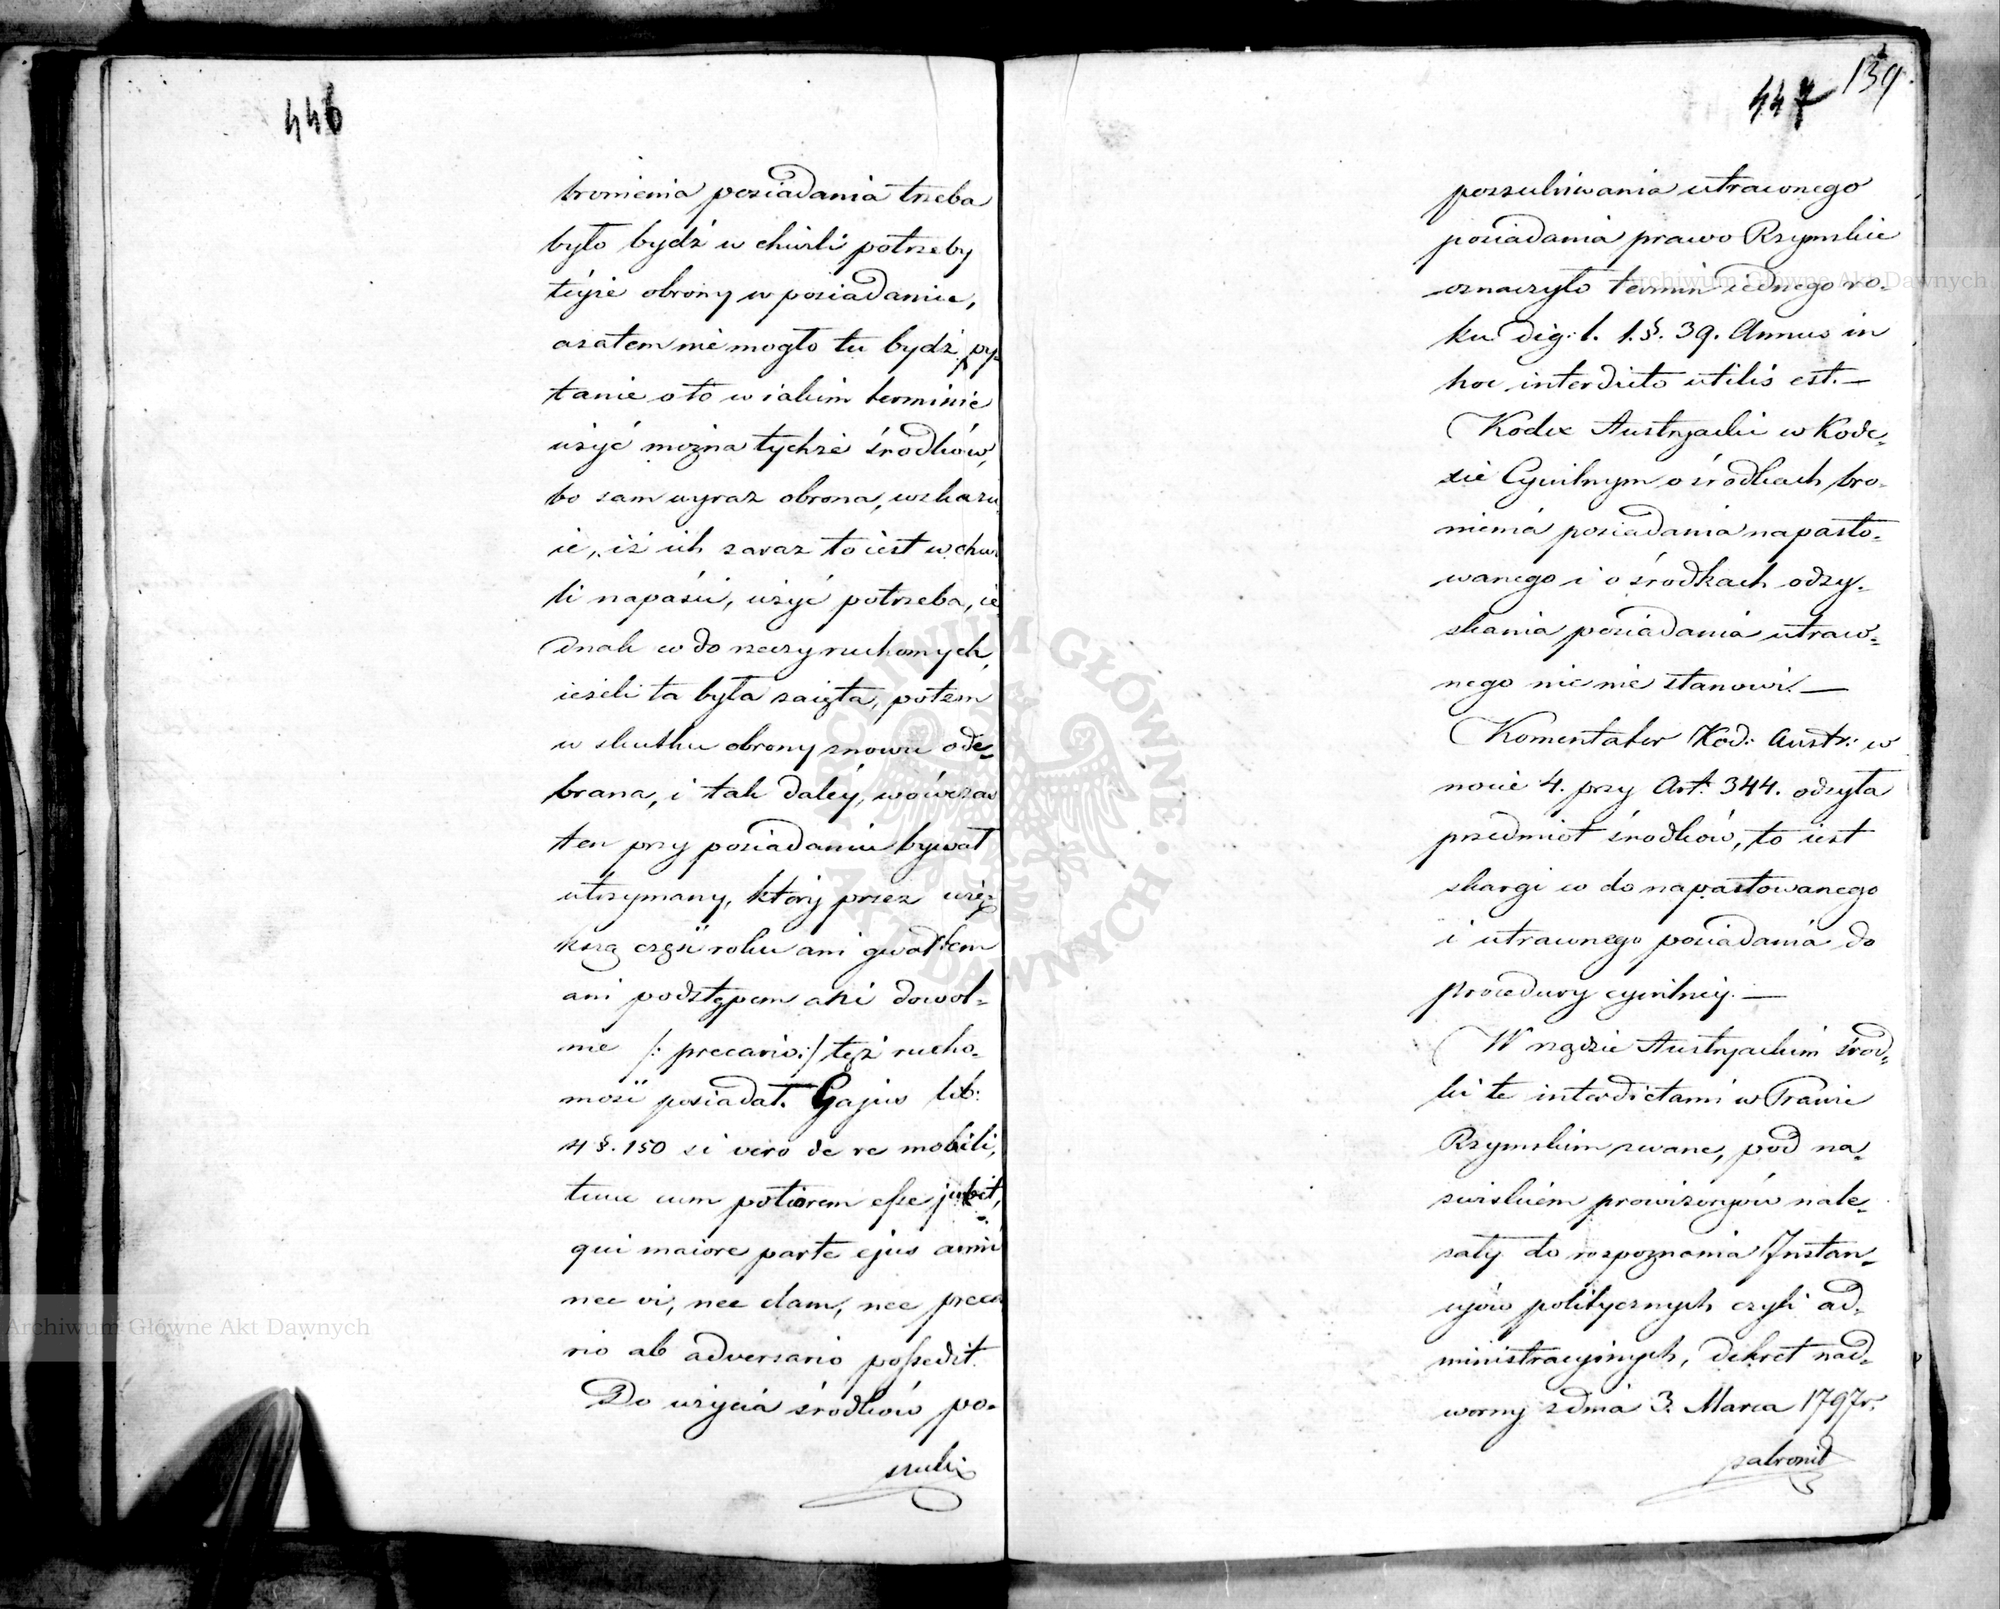 446
bronienia posiadania trzeba
było bydź w chwili potrzeby
téyże obrony w posiadaniu,
azatem nie mogło tu bydź py-
tanie o to w iakim terminie
użyć można tychże środków,
bo sam wyraz obrona, wskazu
ie, iż ich zaraz to iest w chwi
li napaści, użyć potrzeba, ie
dnak co do rzeczy ruchomych,
ieżeli ta była zaięta, potem
w skutku obrony znowu ode-
brana, i tak daléy, wówczas
ten przy posiadaniu bywał
utrzymany, który przez więk-
kszą część roku ani gwałtem
ani podstępem ani dowol-
nie /: precario :/ tęż rucho-
mość posiadał. Gajus lib:
4 §. 150 si vero de re mobili,
tunc eum potiorem esse jubet,
qui maiore parte ejus anni
nec vi, nec clam, nec preca
rio ab adversario possedit.
Do użycia środków po-
szuki
139.
447
poszukiwania utraconego
posiadania prawo Rzymskie
oznaczyło termin iednego ro-
ku dig: l. 1. §. 39. Annus in
hoc interdicto utilis est. —
Kodex Austryacki w Kode-
xie Cywilnym o środkach bro-
nienia posiadania napasto-
wanego i o środkach odzy-
skania posiadania utraco-
nego nic nie stanowi. —
Komentator Kod: Austr: w
nocie 4. przy Art. 344. odsyła
przedmiot środków, to iest
skargi co do napastowanego
i utraconego posiadania do
procedury cywilnéy. —
W rządzie Austryackim środ-
ki te interdictami w Prawie
Rzymskim zwane, pod na-
zwiskiem prowizoryów nale-
żały do rozpoznania Instan-
cyów politycznych czyli ad-
ministracyinych, dekret nad-
worny z dnia 3. Marca 1797 r.
zabronił
Archiwum Główne Akt Dawnych
Archiwum Główne Akt Dawnych
ARCHIWUM GŁÓWNE AKT DAWNYCH